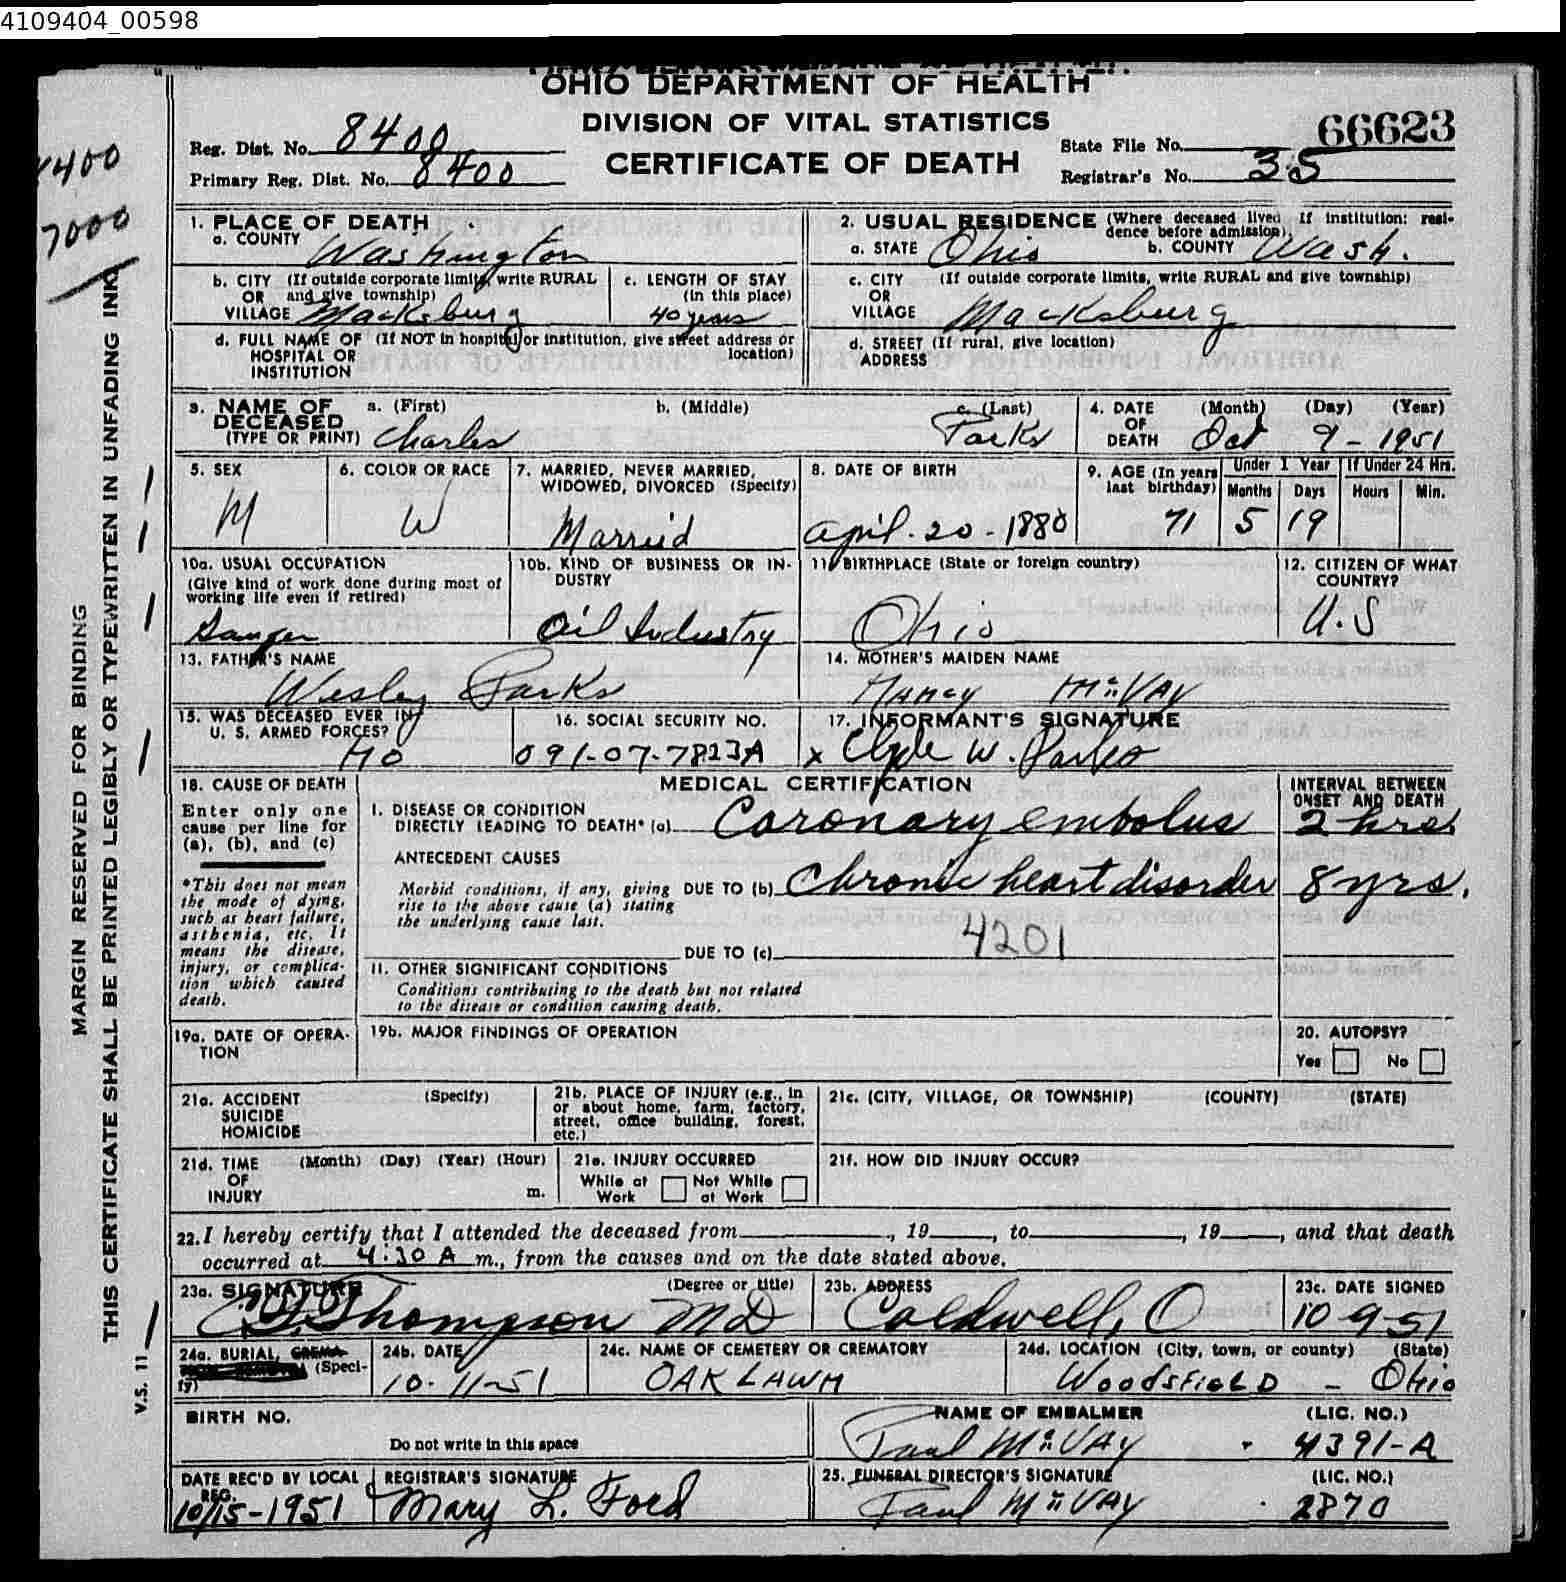 4109404_00598
OHIO DEPARTMENT OF HEALTH
DIVISION OF VITAL STATISTICS
CERTIFICATE OF DEATH
Reg. Dist. No. 8400
Primary Reg. Dist. No. 8400
State File No. 66623
Registrar's No. 35
7000
MARGIN RESERVED FOR BINDING
THIS CERTIFICATE SHALL BE PRINTED LEGIBLY OR TYPEWRITTEN IN UNFADING INK
V.S. 11
1. PLACE OF DEATH
a. COUNTY Washington
b. CITY (If outside corporate limits, write RURAL
OR and give township)
VILLAGE Macksburg
c. LENGTH OF STAY
(in this place)
40 years
d. FULL NAME OF (If NOT in hospital or institution, give street address or
HOSPITAL OR location)
INSTITUTION
2. USUAL RESIDENCE (Where deceased lived If institution: resi-
dence before admission).
a. STATE Ohio b. COUNTY Wash.
c. CITY (If outside corporate limits, write RURAL and give township)
OR
VILLAGE Macksburg
d. STREET (If rural, give location)
ADDRESS
3. NAME OF DECEASED (TYPE OR PRINT)
a. (First) Charles
b. (Middle)
c. (Last) Parks
4. DATE OF DEATH
(Month) (Day) (Year)
Oct 9 - 1951
5. SEX
M
6. COLOR OR RACE
W
7. MARRIED, NEVER MARRIED,
WIDOWED, DIVORCED (Specify)
Married
8. DATE OF BIRTH
April. 20 - 1880
9. AGE (In years
last birthday)
71
Under 1 Year
Months Days
5 19
If Under 24 Hrs.
Hours Min.
10a. USUAL OCCUPATION
(Give kind of work done during most of
working life even if retired)
Gauger
10b. KIND OF BUSINESS OR IN-
DUSTRY
Oil Industry
11. BIRTHPLACE (State or foreign country)
Ohio
12. CITIZEN OF WHAT
COUNTRY?
U.S
13. FATHER'S NAME
Wesley Parks
14. MOTHER'S MAIDEN NAME
Nancy McVay
15. WAS DECEASED EVER IN
U. S. ARMED FORCES?
No
16. SOCIAL SECURITY NO.
091-07-7823A
17. INFORMANT'S SIGNATURE
x Clyde W. Parks
18. CAUSE OF DEATH
Enter only one
cause per line for
(a), (b), and (c)
*This does not mean
the mode of dying,
such as heart failure,
asthenia, etc. It
means the disease,
injury, or complica-
tion which caused
death.
MEDICAL CERTIFICATION
I. DISEASE OR CONDITION
DIRECTLY LEADING TO DEATH* (a) Coronary embolus
ANTECEDENT CAUSES
Morbid conditions, if any, giving
rise to the above cause (a) stating
the underlying cause last.
DUE TO (b) Chronic heart disorder
4201
DUE TO (c)
II. OTHER SIGNIFICANT CONDITIONS
Conditions contributing to the death but not related
to the disease or condition causing death.
INTERVAL BETWEEN
ONSET AND DEATH
2 hrs.
8 yrs.
19a. DATE OF OPERA-
TION
19b. MAJOR FINDINGS OF OPERATION
20. AUTOPSY?
Yes No
21a. ACCIDENT (Specify)
SUICIDE
HOMICIDE
21b. PLACE OF INJURY (e.g., in
or about home, farm, factory,
street, office building, forest,
etc.)
21c. (CITY, VILLAGE, OR TOWNSHIP) (COUNTY) (STATE)
21d. TIME (Month) (Day) (Year) (Hour)
OF
INJURY m.
21e. INJURY OCCURRED
While at Work Not While at Work
21f. HOW DID INJURY OCCUR?
22. I hereby certify that I attended the deceased from , 19 , to , 19 , and that death
occurred at 4:30 A m., from the causes and on the date stated above.
23a. SIGNATURE (Degree or title)
Thompson MD
23b. ADDRESS
Caldwell, O
23c. DATE SIGNED
10-9-51
24a. BURIAL, CREMA-
(Speci-
fy)
24b. DATE
10-11-51
24c. NAME OF CEMETERY OR CREMATORY
OAK LAWN
24d. LOCATION (City, town, or county) (State)
WOODSFIELD - Ohio
BIRTH NO.
Do not write in this space
NAME OF EMBALMER (LIC. NO.)
Paul McVay 4391-A
DATE REC'D BY LOCAL
REG.
10/15-1951
REGISTRAR'S SIGNATURE
Mary L. Ford
25. FUNERAL DIRECTOR'S SIGNATURE (LIC. NO.)
Paul McVay 2870